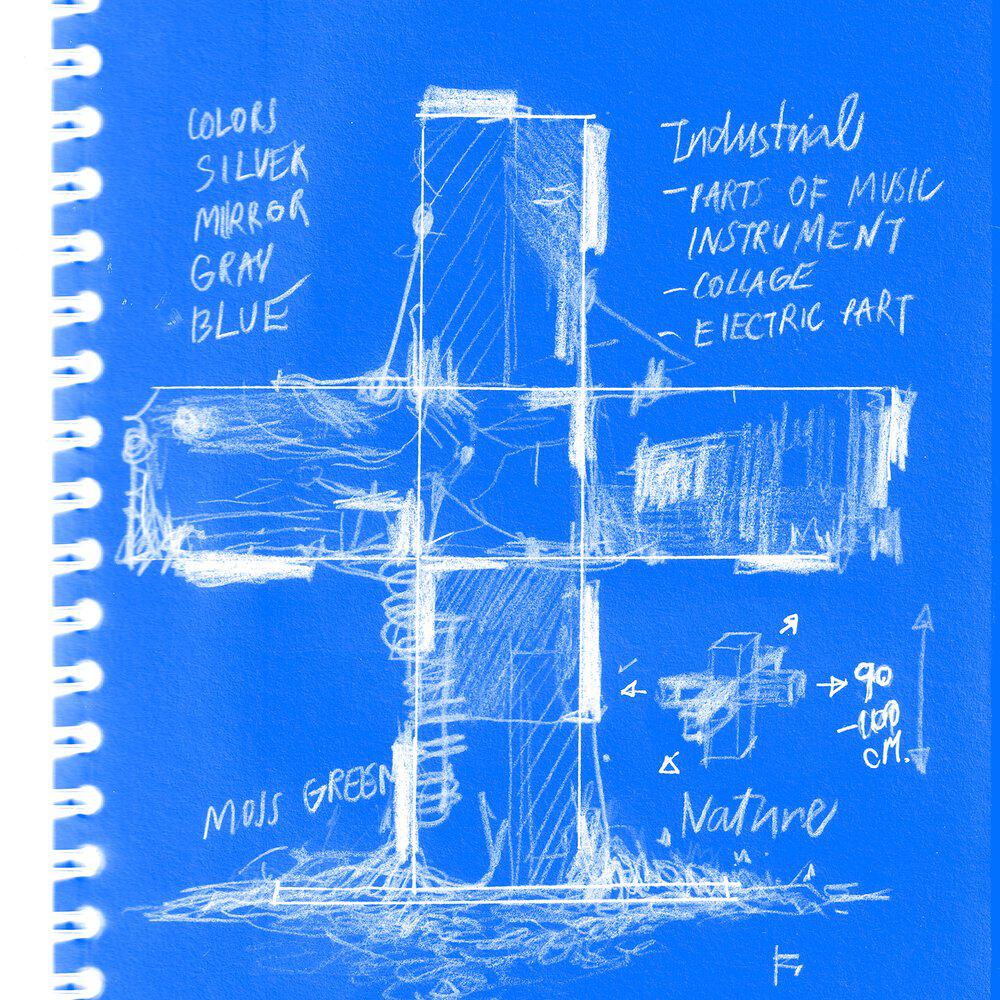 COLORS
SILVER
MIRROR
GRAY
BLUE
Industrial
- PARTS OF MUSIC
INSTRUMENT
- COLLAGE
- ElECTRIC PART
90
CM.
MOSS GREEN
Nature